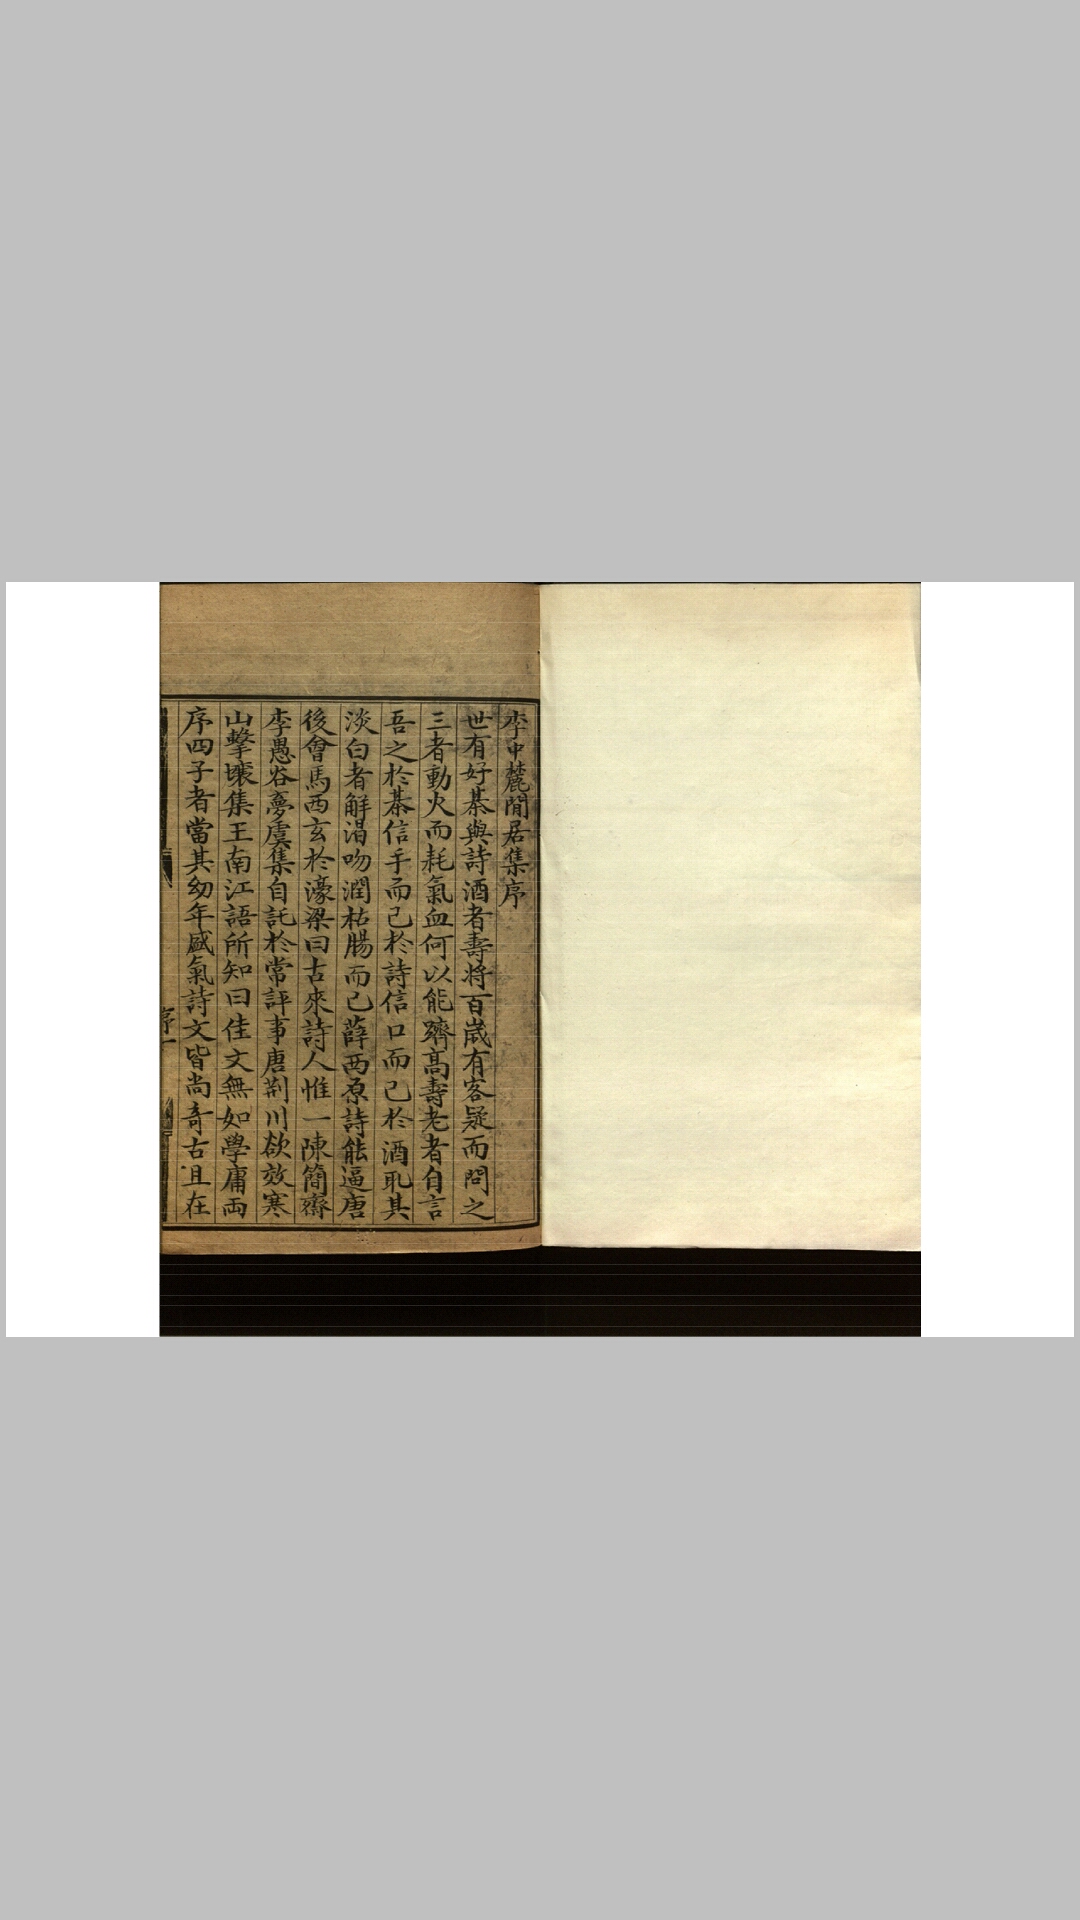 李中麓閒居集序
世有好棊與詩酒者壽將百歲有客疑而問之
三者動火而耗氣血何以能躋高壽老者自言
吾之於棊信手而已於詩信口而已於酒耴其
淡白者解渴吻潤枯腸而已薛西原詩能逼唐
後會馬西玄於濠梁曰古來詩人惟一陳簡齋
李愚谷夢虞集自託於常評事唐荆川欲效寒
山擊壤集王南江語所知曰佳文無如學庸兩
序四子者當其幼年盛氣詩文皆尚奇古且在
序一